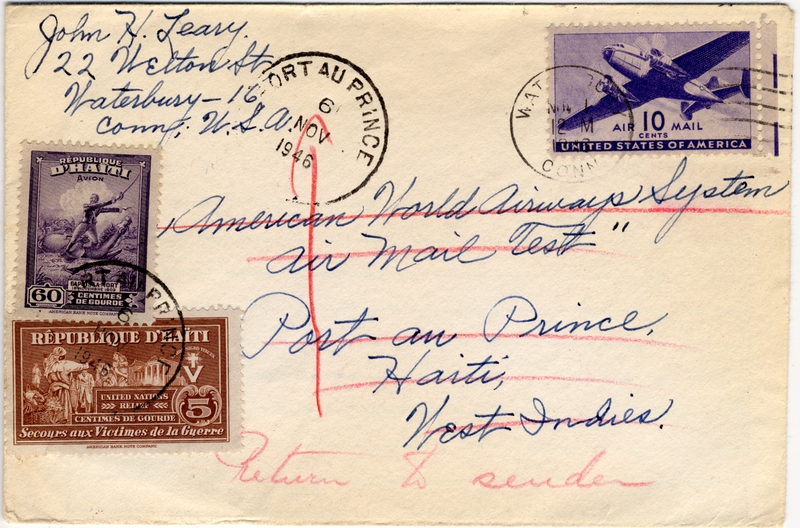 John H. Leary.
22 Welton St.
Waterbury-16
Conn, U.S.A.
PORT AU PRINCE
6
NOV
1946
CONN
AIR 10 MAIL
CENTS
UNITED STATES OF AMERICA
RÉPUBLIQUE
D'HAITI
AVION
60 CENTIMES
DE GOURDE
AMERICAN BANK NOTE COMPANY
American World Airways System
Air Mail Test"
Port au Prince,
Haiti,
West Indies.
PRINCE
6
NOV
1946
RÉPUBLIQUE D'HAITI
V
UNITED NATIONS
RELIEF
5
CENTIMES DE GOURDE
Secours aux Victimes de la Guerre
AMERICAN BANK NOTE COMPANY
Return to sender